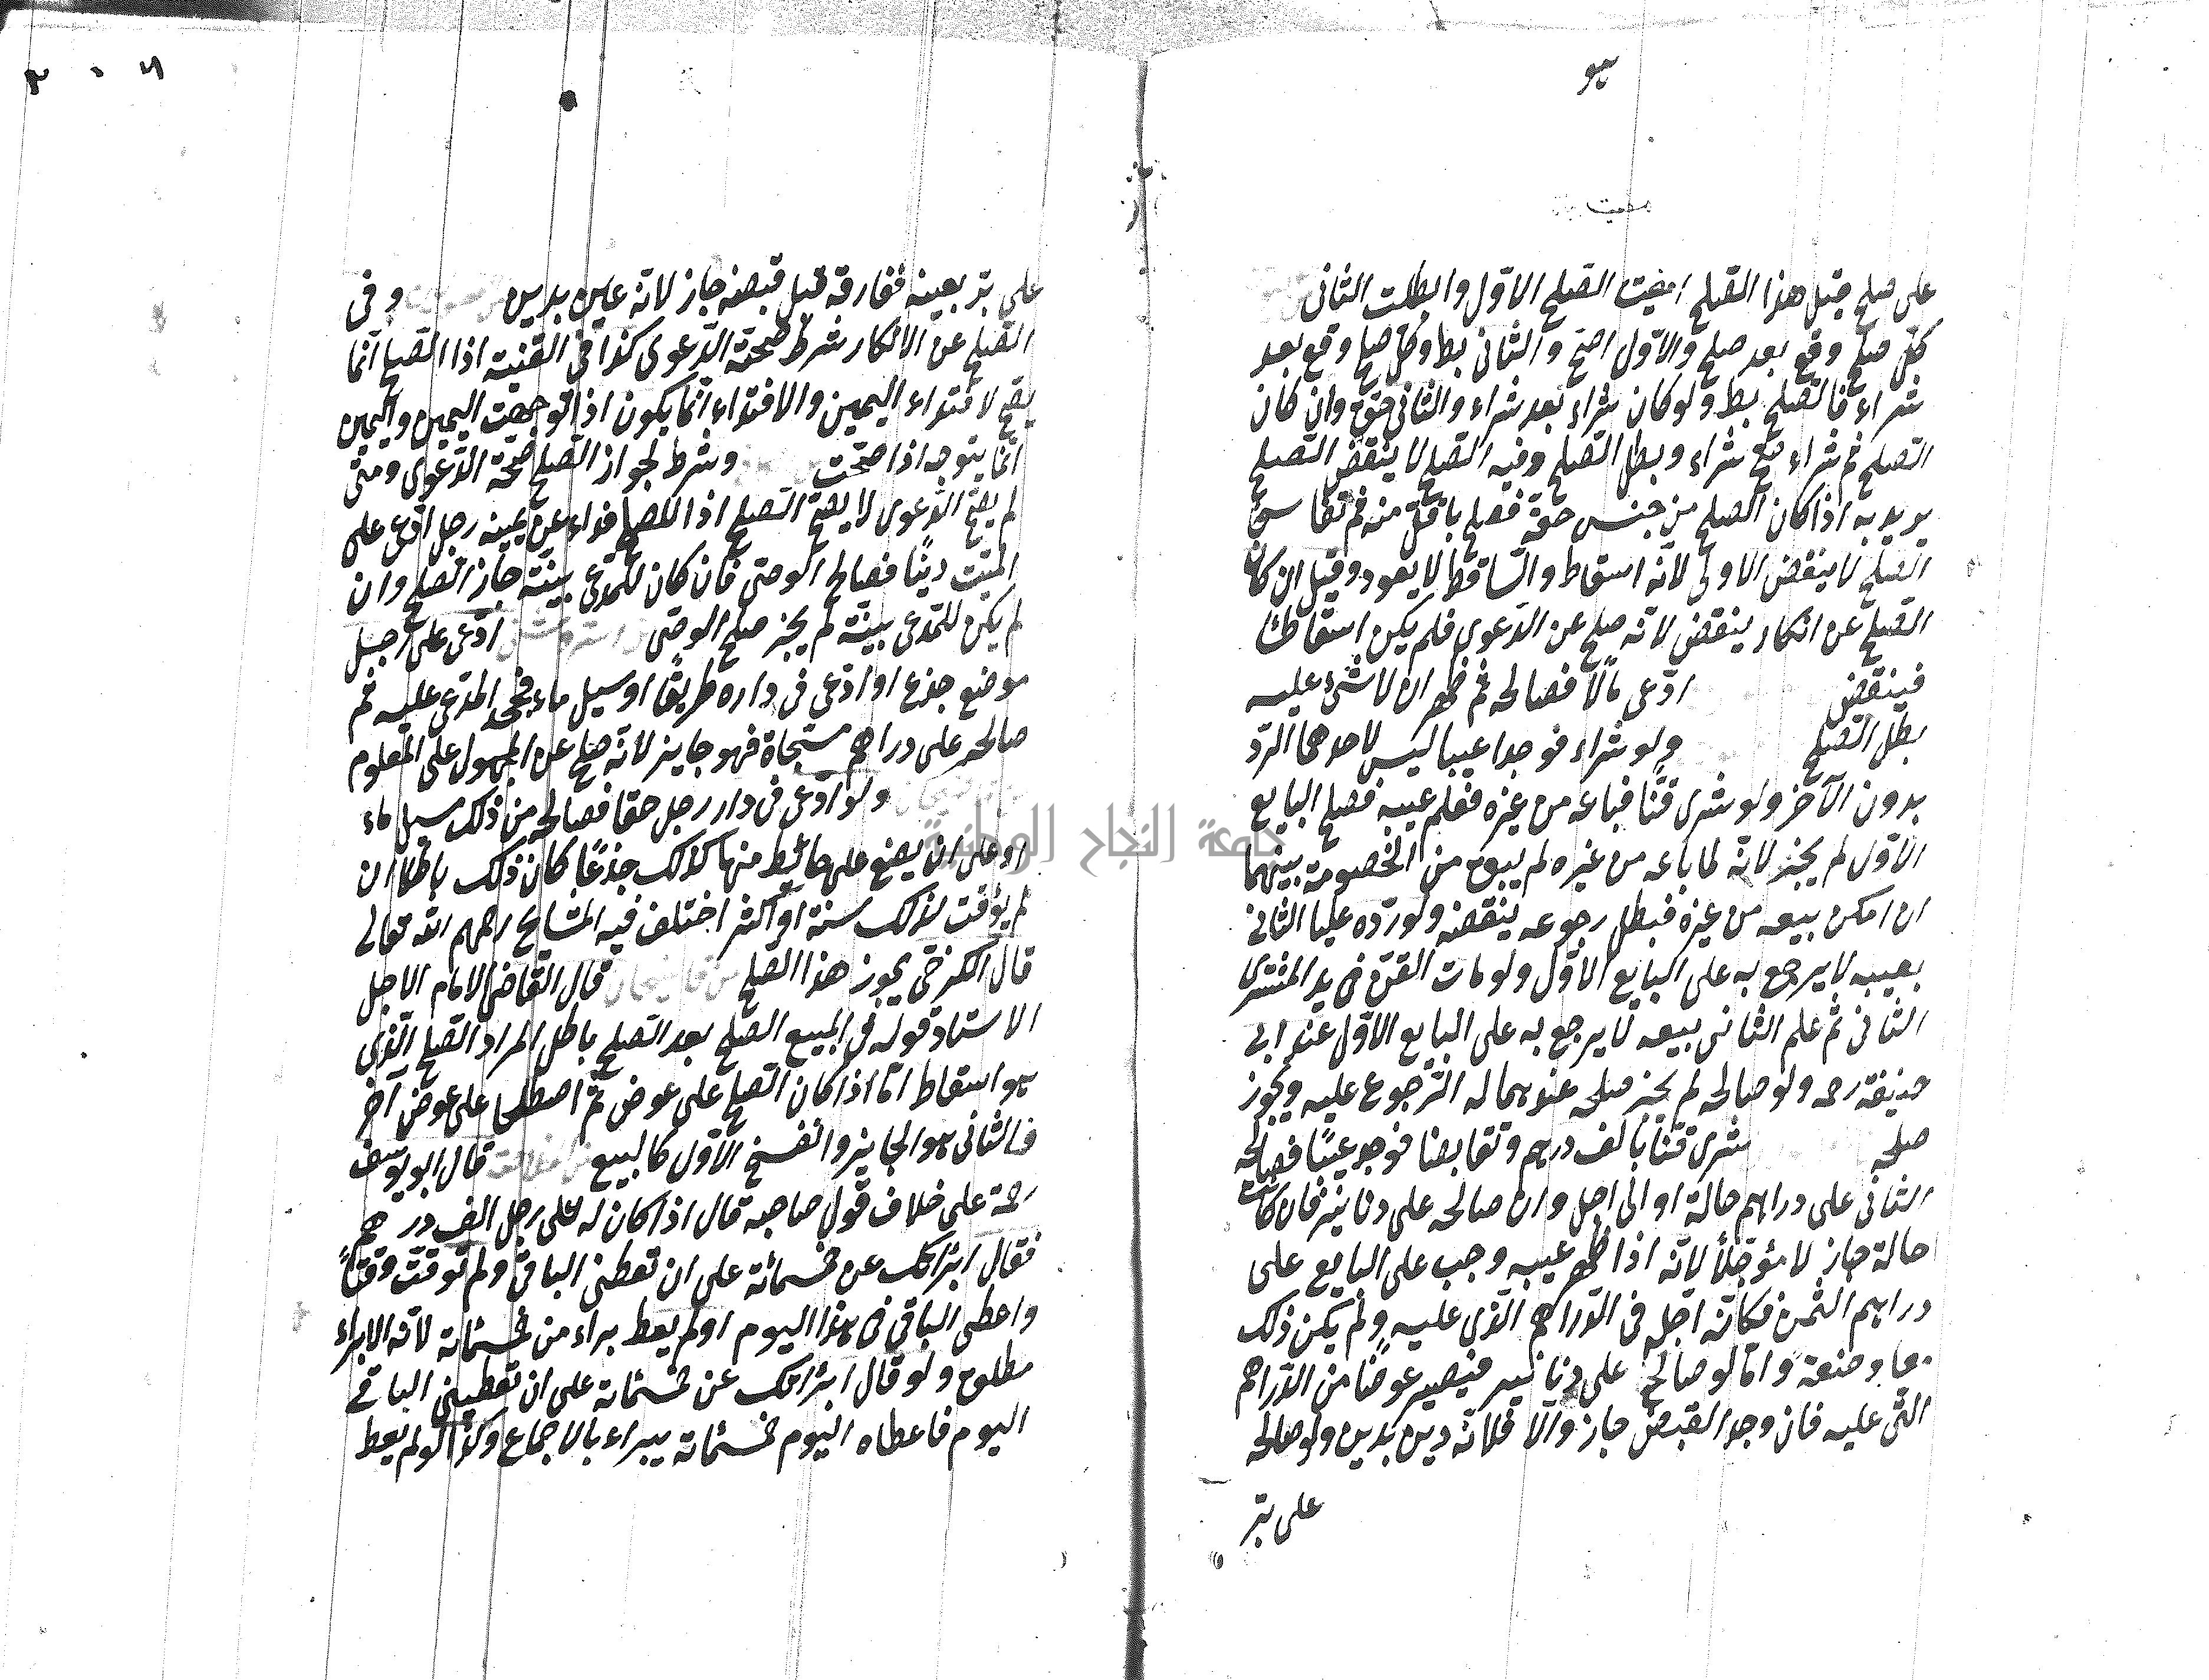 على صلح قبل هذا الصلح امضيت الصلح الاوّل وابطلت الثانى
كل صلح وقع بعد صلح والاوّل اصح والثانى بط وكل صلح وقع بعد
شراء فالصلح بط ولو كان شراء بعد شراء والثانى حق وان كان
الصلح ثم شراء صح شراء وبطل الصلح وفيه الصلح لا ينقض الصلح
يريد به اذا كان الصلح من جنس حقه فصلح باقل منه ثم تفاسخا
الصلح لا ينقض الاولى لانّه اسقاط والسّاقط لا يعود وقيل ان كان
الصّلح عن انكار ينقض لانّه صلح عن الدّعوى فلم يكن اسقاطا
فينقض ادّعى مالا فصالحه ثم ظهر ان لا شئ عليه
بطل الصّلح ولو شراء فوجدا عيبا ليس لاحدهما الردّ
بدون الآخر ولو شرى قنّا فباعه من غيره فعلم عيبه فصلح البايع
الاوّل لم يجز لانّه لما باعه من غيره لم يبق من الخصومة بينهما
ان امكن بيعه من غيره فبطل رجوعه ينقضه ولو ردّه عليا الثانى
بعيبه لا يرجع به على البايع الاوّل ولو مات القنّ فى يد المشترى
الثانى ثم علم الثانى ببيعه لا يرجع به على البايع الاوّل عند ابى
حنيفة رحه ولو صالحه لم يجز صلحه عندهما له الرّجوع عليه ويجوز
صلحه شرى قنّا بالف درهم وتقابضا فوجد عيبًا فصالحه
الثانى على دراهم حالة او الى اجل وان صالحه على دنانير فان كانت
حالة جاز لا مؤجّلاً لانّه اذا ظهر عيبه وجب على البايع على
دراهم الثمن فكانّه اجّل فى الدّراهم الذى عليه ولم يكن ذلك
معاوضة وامّا لو صالح على دنانير فيصير عوضًا من الدّراهم
التى عليه فان وجد القبض جاز والّا فلانّه دين بدين ولو صالحه
على بّر
على بّر بعينه ففارقه قبل قبضه جاز لانّه عين بدين وفى
الصّلح عن الانكار شرط صحّة الدّعوى كذا فى القنية اذا الصّلح انّما
يصح لافتداء اليمين والافتداء انّما يكون اذا توجهت اليمين واليمين
انّما يتوجه اذا صحّت وشرط لجواز الصّلح صحّة الدّعوى ومتى
لم يصحّ الدّعوى لا يصحّ الصّلح اذا للصلح فداء عن يمينه رجل ادّعى على
الميّت دينًا فصالح الوصّى فان كان للمدّعى بيّنة جاز الصّلح وان
لم يكن للمدّعى بيّنة لم يجز صلح الوصّى ادّعى على رجل
موضع جذع او ادّعى فى داره طريقًا او سيل ماء فجحد المدّعى عليه ثم
صالحه على دراهم مسمّاة فهو جايز لانّه صلح عن المجهول على المعلوم
ولو ادّعى فى دار رجل حقا فصالحه من ذلك سيل ماء
او على ان يضع على حائط منها كذلك جذعًا كان ذلك باطلا ان
لم يؤقت لذلك سنة او اكثر اختلف فيه المشايخ رحمهم الله تعالى
قال الكرخى يجوز هذا الصلح قال القاضى الامام الاجل
الاستاد قوله فى المبيع الصّلح بعد الصّلح باطل المراد الصّلح الّذى
هو اسقاط امّا اذا كان الصّلح على عوض ثمّ اصطلحا على عوض آخر
فالثانى هو الجايز وانفسخ الاوّل كالبيع قال ابو يوسف
رحمه على خلاف قول صاحبه قال اذا كان له على رجل الف درهم
فقال ابرأتك عن خمسمائة على ان تعطنى الباقى ولم توقّت وقتًا
واعطى الباقى فى هذا اليوم او لم يعط براء من خمسمائة لانّه الابراء
مطلوع ولو قال ابرأتك عن خمسمائة على ان تعطينى الباقى
اليوم فاعطاه اليوم خمسمائة يبراء بالاجماع وكذا لو لم يعط
جامعة النجاح الوطنية